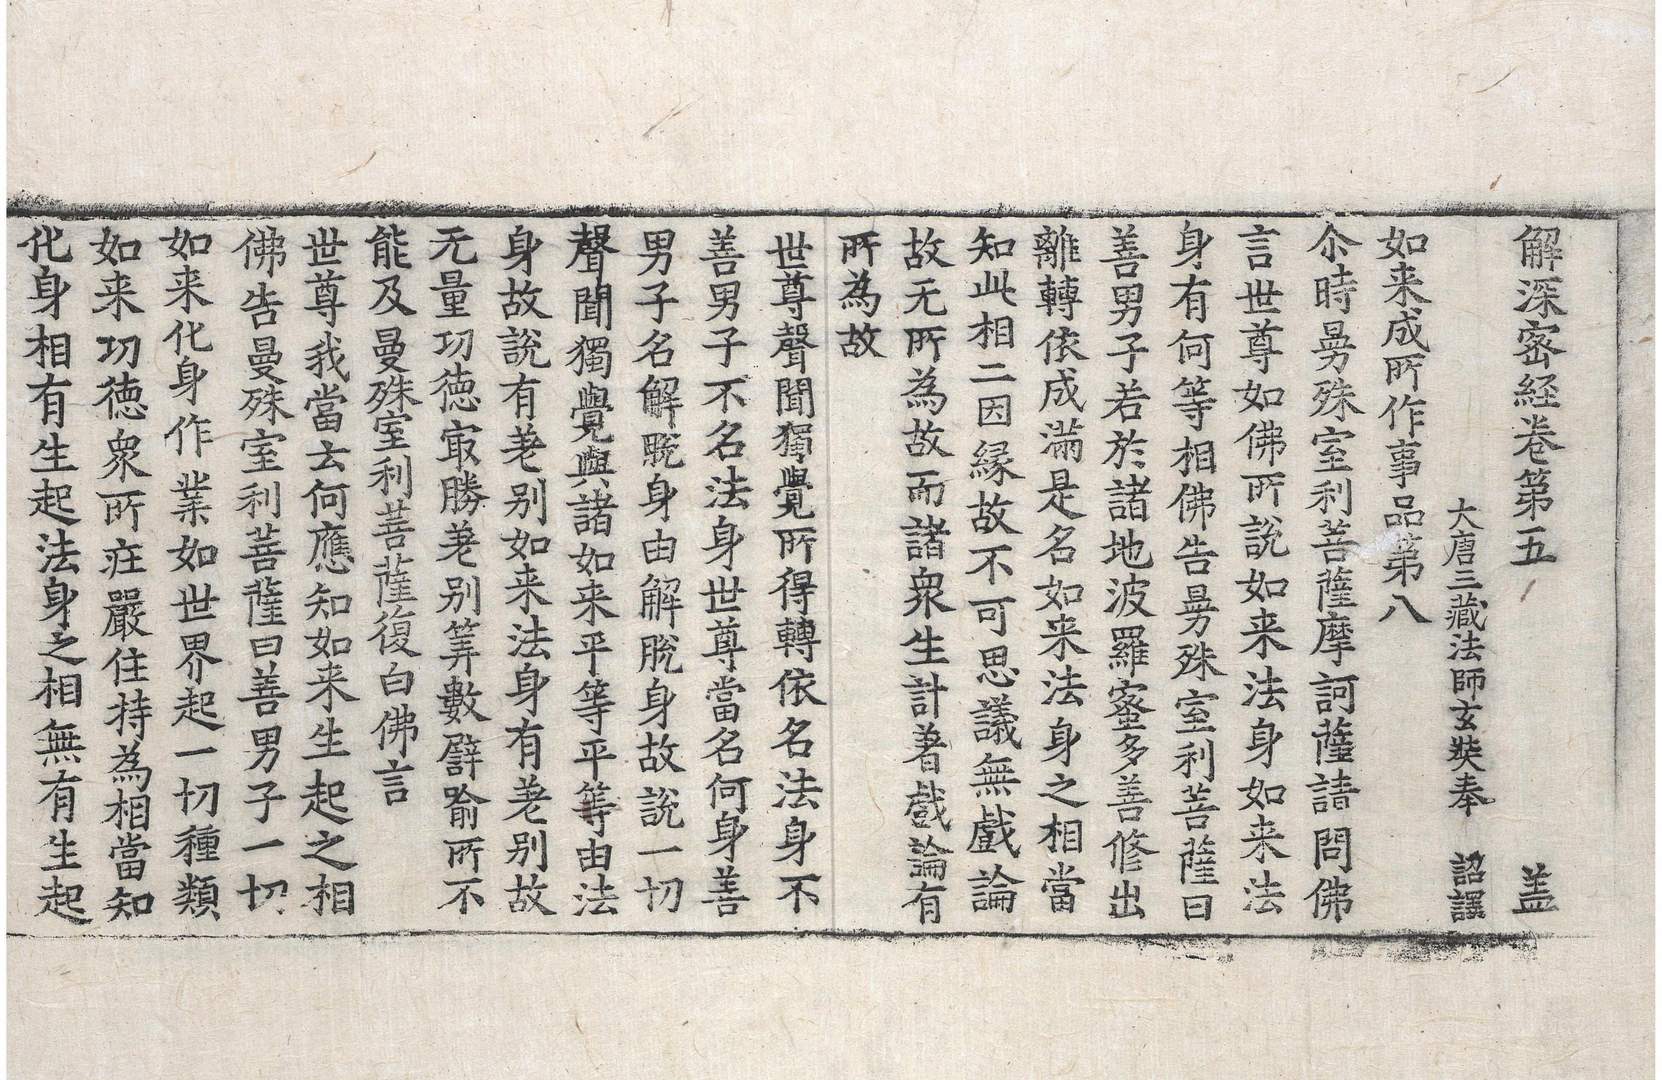 解深密経卷第五 盖
大唐三藏法師玄奘奉 詔譯
如来成所作事品第八
尒時曼殊室利菩薩摩訶薩請問佛
言世尊如佛所說如来法身如来法
身有何等相佛告曼殊室利菩薩曰
善男子若於諸地波羅蜜多善修出
離轉依成滿是名如来法身之相當
知此相二因緣故不可思議無戲論
故无所為故而諸衆生計著戲論有
所為故
世尊聲聞獨覺所得轉依名法身不
善男子不名法身世尊當名何身善
男子名解脫身由解脫身故說一切
聲聞獨覺與諸如来平等平等由法
身故說有差别如来法身有差别故
无量功德寂勝差别筭數譬喻所不
能及曼殊室利菩薩復白佛言
世尊我當云何應知如来生起之相
佛告曼殊室利菩薩曰善男子一切
如来化身作業如世界起一切種類
如来功德衆所庄嚴住持為相當知
化身相有生起法身之相無有生起